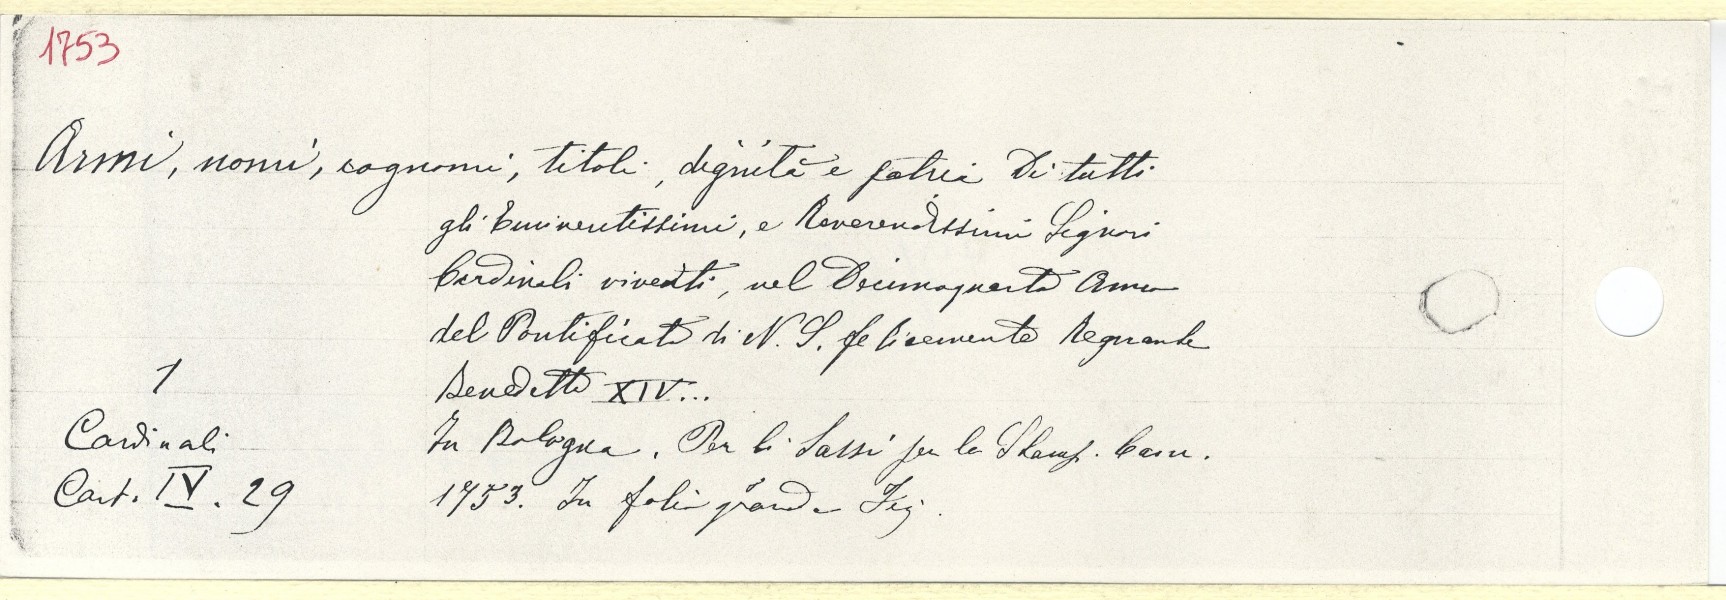 1753
Armi, nomi, cognomi, titoli, dignità e patria Di tutti
gli Eminentissimi, e Reverendissimi Signori
Cardinali viventi, nel Decimoquarto Anno
del Pontificato di N. S. felicemente Regnante
Benedetto XIV...
1
Cardinali
Cart. IV. 29
In Bologna. Per li Sassi per la Stamp. Cam.
1753. In folio grande Fig.